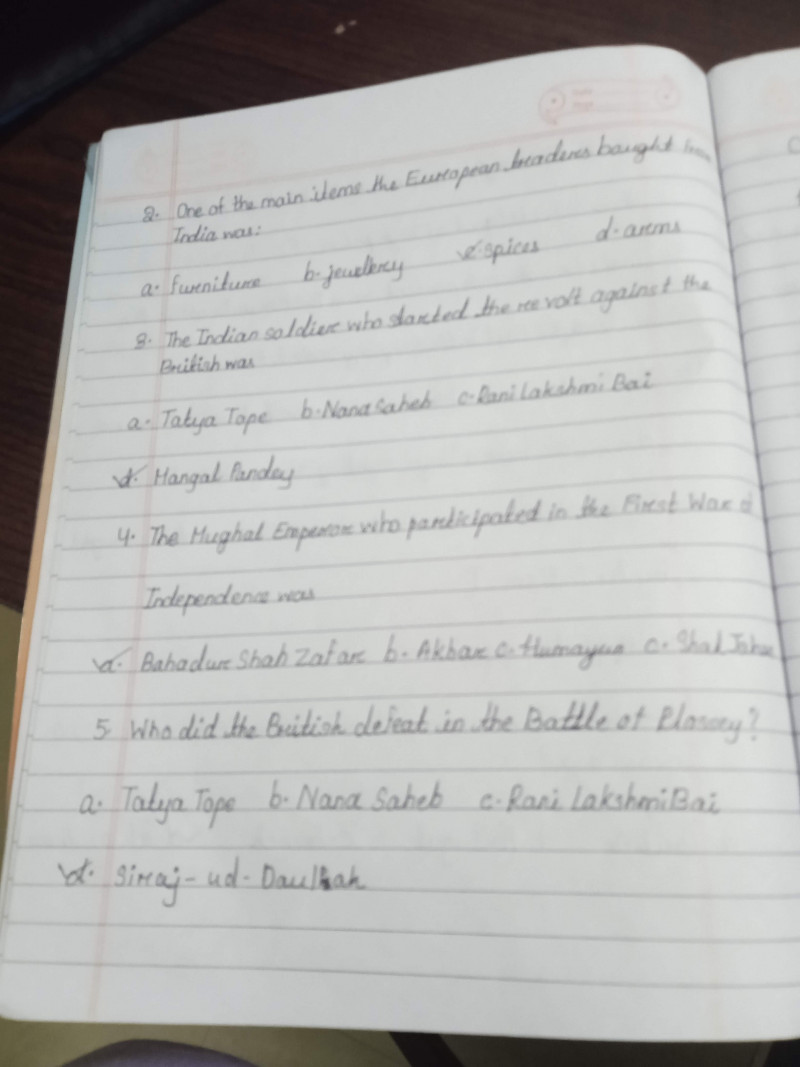 2. One of the main items the European traders bought from
India was:
a. furniture b. jewellery c. spices d. arms
3. The Indian soldier who started the revolt against the
British was
a. Tatya Tope b. Nana Saheb c. Rani Lakshmi Bai
d. Mangal Pandey
4. The Mughal Emperor who participated in the First War of
Independence was
a. Bahadur Shah Zafar b. Akbar c. Humayun c. Shah Jahan
5. Who did the British defeat in the Battle of Plassey?
a. Tatya Tope b. Nana Saheb c. Rani Lakshmi Bai
d. Siraj-ud-Daullah